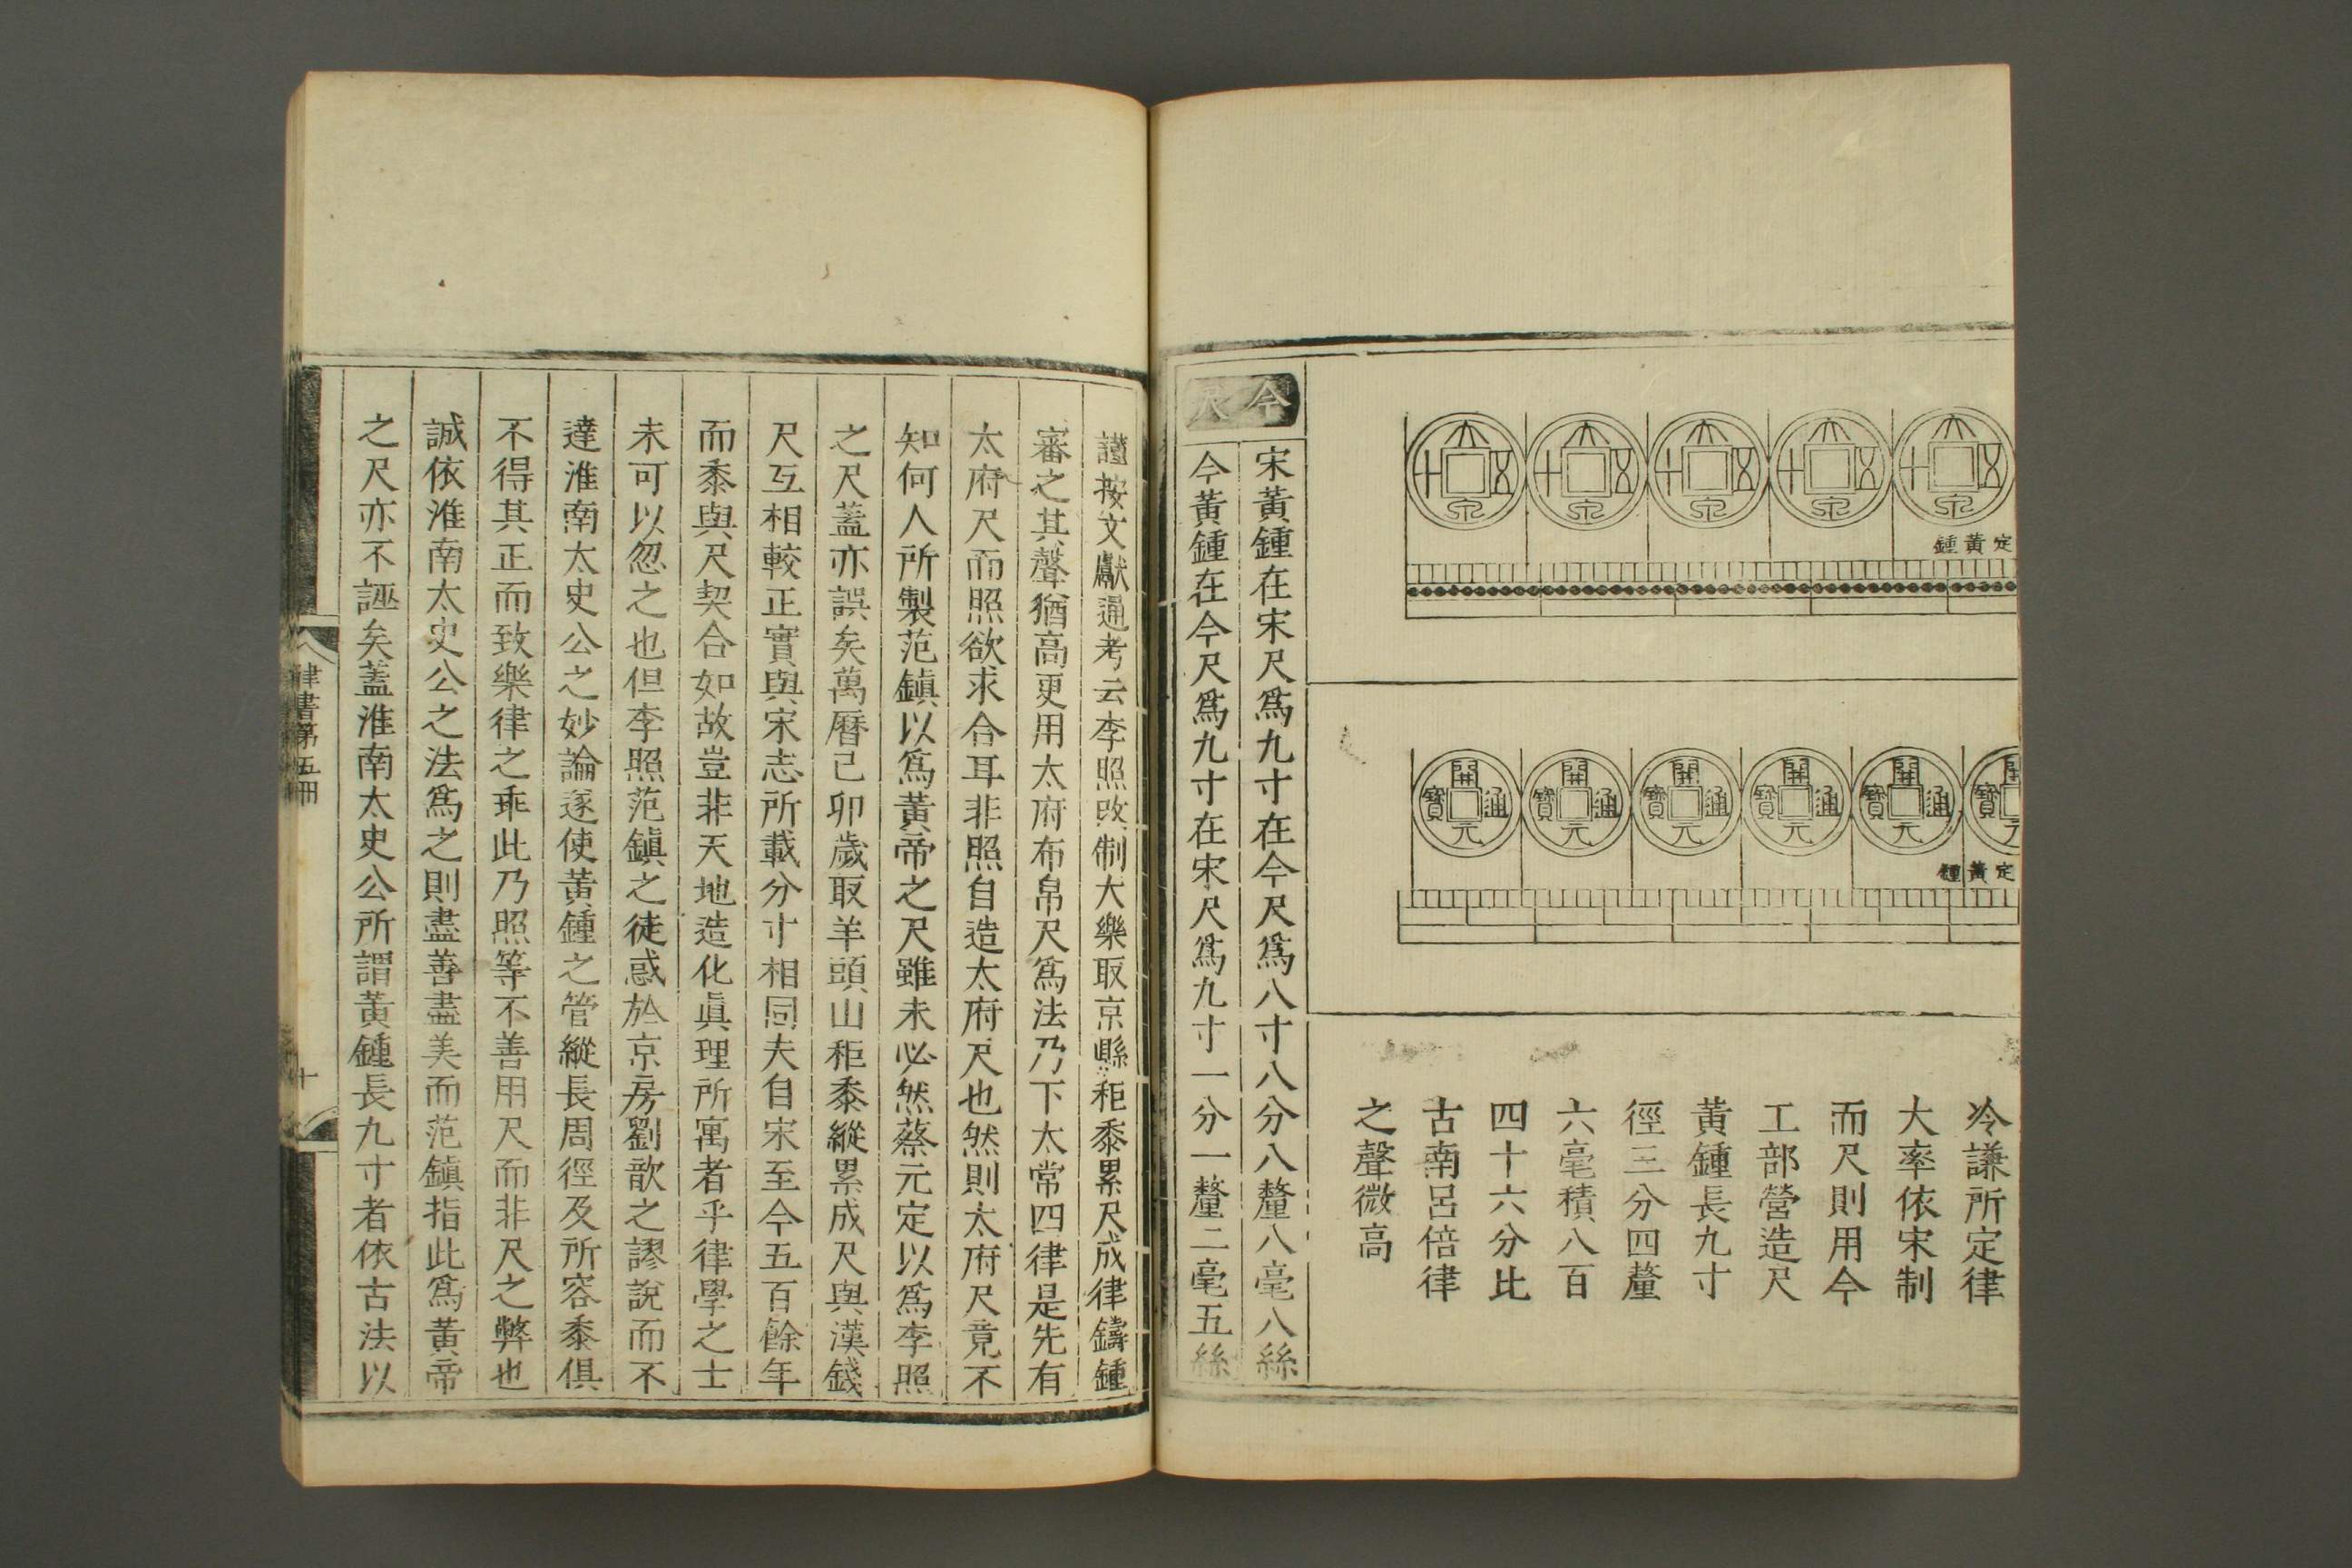 大泉五十
大泉五十
大泉五十
大泉五十
大泉五十
定黃鍾
開元通寶
開元通寶
開元通寶
開元通寶
開元通寶
定黃鍾
冷謙所定律
大率依宋制
而尺則用今
工部營造尺
黃鍾長九寸
徑三分四釐
六毫積八百
四十六分比
古南呂倍律
之聲微高
今尺
宋黃鍾在宋尺爲九寸在今尺爲八寸八分八釐八毫八絲
今黃鍾在今尺爲九寸在宋尺爲九寸一分一釐二毫五絲
謹按文獻通考云李照改制大樂取京縣秬黍累尺成律鑄鍾
審之其聲猶高更用太府布帛尺爲法乃下太常四律是先有
太府尺而照欲求合耳非照自造太府尺也然則太府尺竟不
知何人所製范鎮以爲黃帝之尺雖未必然蔡元定以爲李照
之尺蓋亦誤矣萬曆己卯歲取羊頭山秬黍縱累成尺與漢錢
尺互相較正實與宋志所載分寸相同夫自宋至今五百餘年
而黍與尺契合如故豈非天地造化眞理所寓者乎律學之士
未可以忽之也但李照范鎮之徒惑於京房劉歆之謬說而不
達淮南太史公之妙論遂使黃鍾之管縱長周徑及所容黍俱
不得其正而致樂律之乖此乃照等不善用尺而非尺之弊也
誠依淮南太史公之法爲之則盡善盡美而范鎮指此爲黃帝
之尺亦不誣矣蓋淮南太史公所謂黃鍾長九寸者依古法以
律書第五冊
十